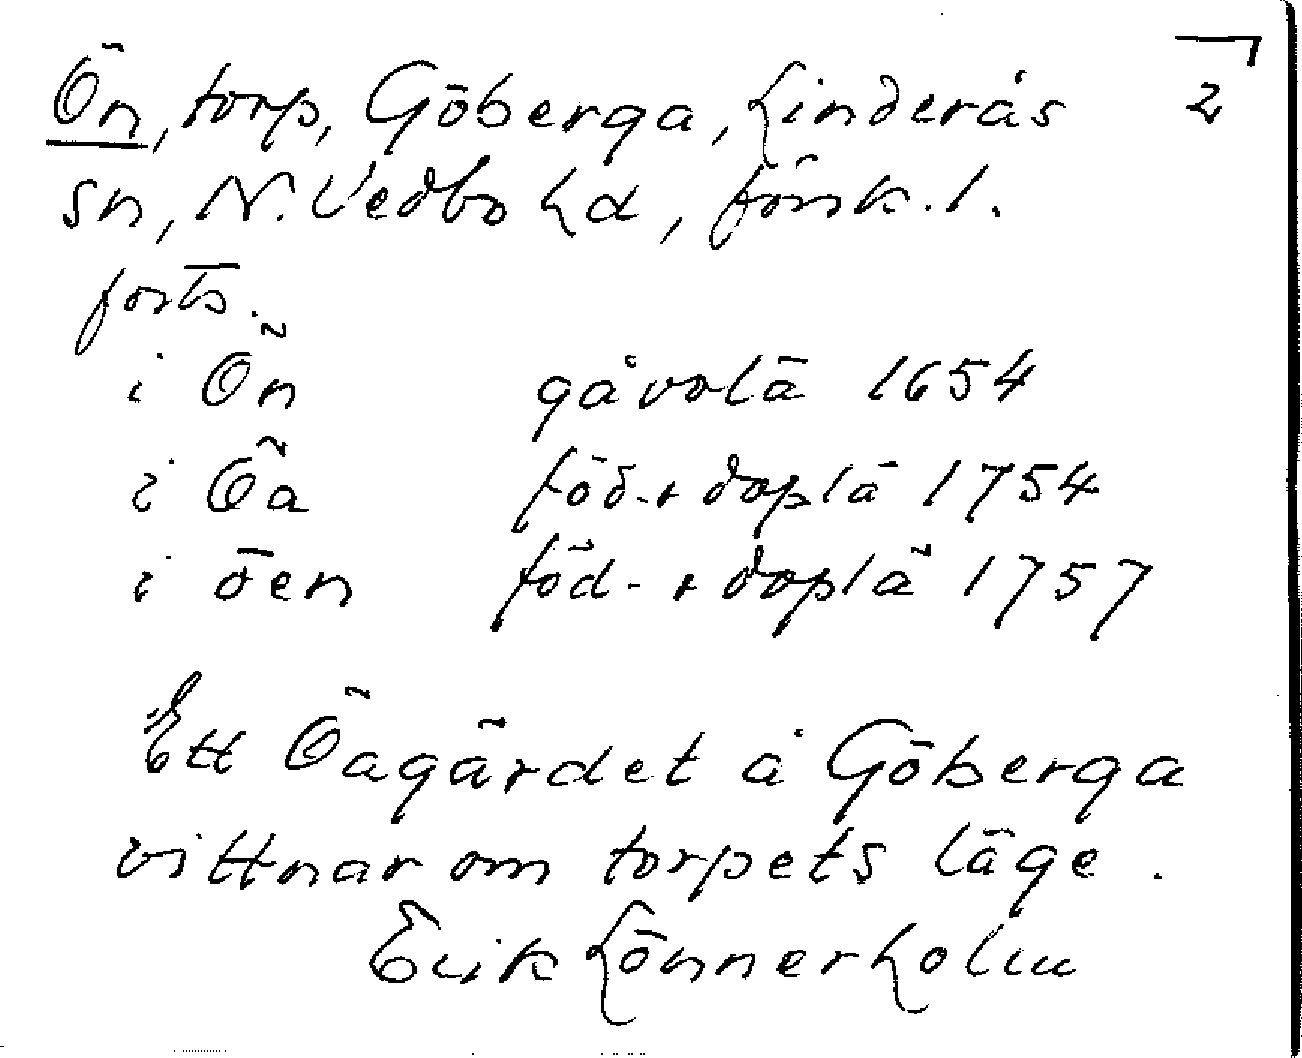 Ön, torp, Göberga, Linderås 2
sn, N. Vedbo hd, förk. l.
forts.
i Ön gåvolä 1654
i Öa föd- + doplä 1754
i öen föd- + doplä 1757
Ett Öagärdet å Göberga
vittnar om torpets läge.
Erik Lönnerholm